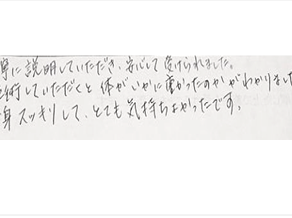 寧に説明していただき、安心して受けられました。
術していただくと体がいかに重かったのかがわかりました
身スッキリして、とても気持ちよかったです。